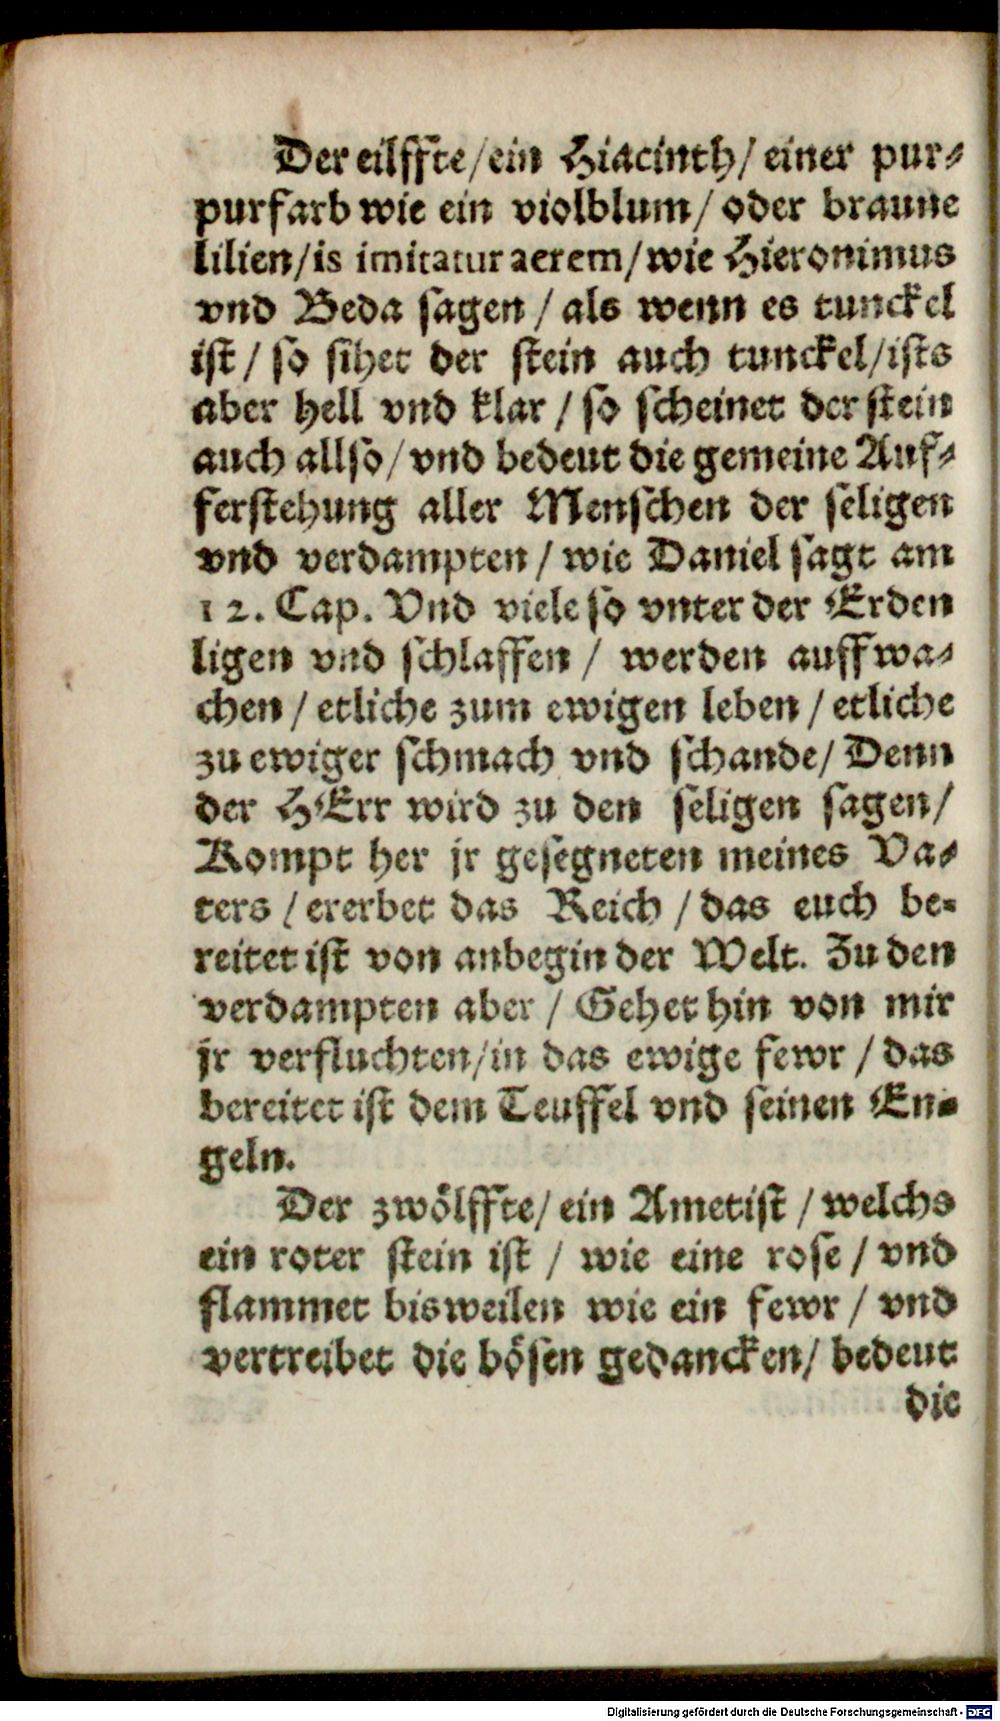 Der eilffte / ein Hiacinth / einer pur-
purfarb wie ein violblum / oder braune
lilien / is imitatur aerem / wie Hieronimus
vnd Beda sagen / als wenn es tunckel
ist / so sihet der stein auch tunckel / ists
aber hell vnd klar / so scheinet der stein
auch allso / vnd bedeut die gemeine Auf-
ferstehung aller Menschen der seligen
vnd verdampten / wie Daniel sagt am
12. Cap. Vnd viele so vnter der Erden
ligen vnd schlaffen / werden auffwa-
chen / etliche zum ewigen leben / etliche
zu ewiger schmach vnd schande / Denn
der HErr wird zu den seligen sagen /
Kompt her jr gesegneten meines Va-
ters / ererbet das Reich / das euch be-
reitet ist von anbegin der Welt. Zu den
verdampten aber / Gehet hin von mir
jr verfluchten / in das ewige fewr / das
bereitet ist dem Teuffel vnd seinen En-
geln.
Der zwölffte / ein Ametist / welchs
ein roter stein ist / wie eine rose / vnd
flammet bisweilen wie ein fewr / vnd
vertreibet die bösen gedancken / bedeut
die
Digitalisierung gefördert durch die Deutsche Forschungsgemeinschaft - DFG